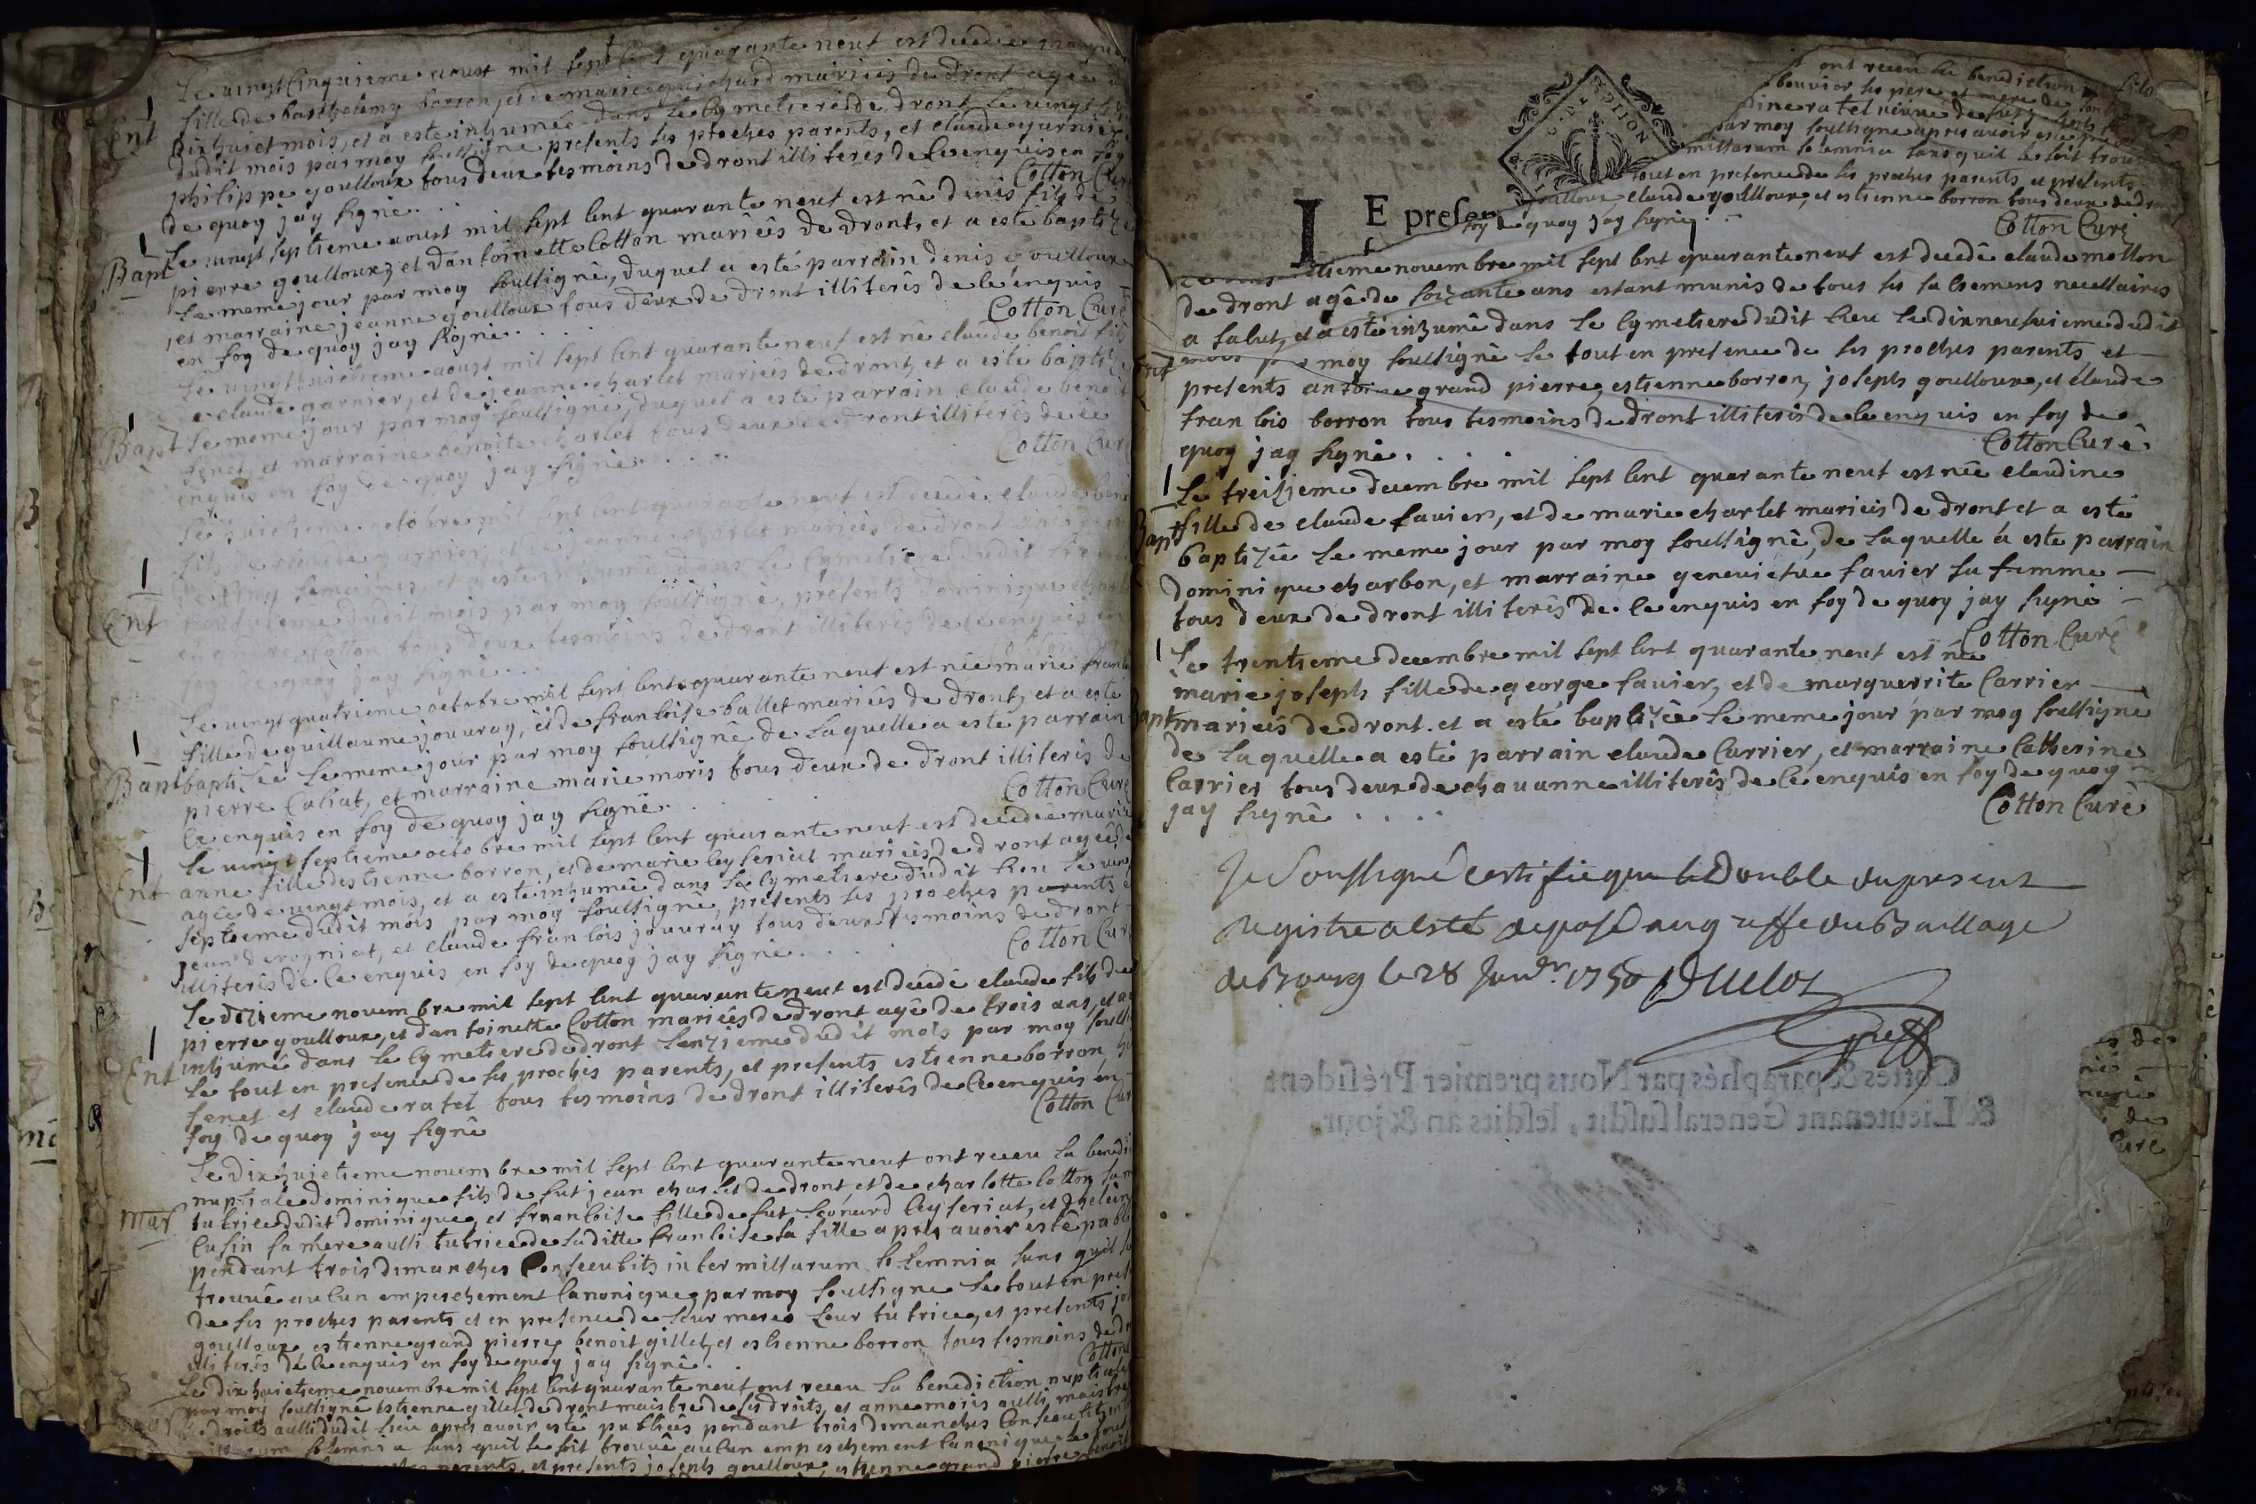 Le vingt cinquieme aoust mil sept cent quarante neuf est decedée
fille de barthelemy borron, et de marie guichard mariés de dront agée
dixhuet mois, et a este inhumée dans le cymetiere de dront le vingt
dudit mois par moy soussigne presents ses proches parents, et claude garnier
philippe goulloux tous deux tesmoins de dront illiteres de ce enquis en foy
de quoy jay signe . .
Cotton Curé
Ent
Le vingt septieme aoust mil sept cent quarante neuf est né denis fils de
pierre goulloux, et dantoinette Cotton mariés de dront, et a esté baptizé
le meme jour par moy soussigné, duquel a esté parrain denis goulloux
et marraine jeanne goulloux tous deux de dront illiterés de ce enquis
en foy de quoy jay signé . . .
Cotton Curé
Bapt
Le vingthuictieme aoust mil sept cent quarante neuf est né claude benoit fils
a claude garnier, et de jeanne charlet mariés de dront, et a este baptizé
le meme jour par moy soussigné, duquel a esté parrain claude benoit
fenet et marraine benoite charlet tous deux de dront illiterés de ce
enquis en foy de quoy jay signé . . . .
Cotton Curé
Bapt
Le huictieme octobre mil sept cent quarante neuf est decedé claude benoit
fils de claude garnier, et de jeanne charlet mariés de dront
de cinq semaines, et a este inhumé dans le cymetiere dudit
dudit mois par moy soussigné, presents dominique
et Cotton tous deux tesmoins de dront illiterés de ce enquis en
foy de quoy jay signé . .
Ent
Le vingt quatrieme octobre mil sept cent quarante neuf est née marie
fille de guillaume jouvray, et de francoise ballet mariés de dront, et a esté
baptizée le meme jour par moy soussigné de laquelle a esté parrain
pierre Caliat, et marraine marie moris tous deux de dront illiteris de
ce enquis en foy de quoy jay signé. . . .
Cotton Curé
Bapt
Le vingt septieme octobre mil sept cent quarante neuf est decedée marie
anne fille destienne borron, et de marie ceyseriat mariés de dront agée de
agée de vingt mois, et a esté inhumée dans le cymetiere dudit lieu le vingt
septieme dudit mois par moy soussigné, presents ses proches parents et
jean derogniat, et claude francois jouvray tous deux tesmoins de dront
illiteris de ce enquis en foy de quoy jay signé . . .
Cotton Curé
Ent
Le dizieme novembre mil sept cent quarante neuf est decedé claude fils de
pierre goulloux, et dantoinette Cotton mariés de dront agé de trois ans, et a
inhumé dans le cymetiere de dront lonzieme dudit mois par moy
le tout en presence de ses proches parents, et presents estienne borron,
fenet et claude ratel tous tesmoins de dront illiterés de ce enquis en
foy de quoy jay signé
Cotton Curé
Ent
Le dixhuictieme novembre mil sept cent quarante neuf ont receu la
nuptiale dominique fils de fut jean charlet de dront et de charlotte Cotton sa
tutrice dudit dominique, et francoise fille de fut leonard Ceyseriat, et
Cusin sa mere aussi tutrice de saditte francoise sa fille apres avoir esté
pendant trois dimanches Consecutifs inter missarum solemnia sans quil
trouvé aucun empeschement Canonique par moy soussigné le tout en
de ses proches parents et en presence de leur meres leur tutrices, et presents
goulloux, estienne grand pierre benoit gillet, et estienne borron tous tesmoins de
illiterés de ce enquis en foy de quoy jay signé .
Mar
Le dix huictieme novembre mil sept cent quarante neuf ont receu la benediction nuptiale
par moy soussigné Estienne gillet de dront maistre de ses droits, et anne moris aussi
droits aussi dudit lieu apres avoir esté publiés pendant trois dimanches
solemnia sans quil se soit trouvé aucun empeschement canonique
parents, et presents joseph goulloux, estienne grand pierre
IE presen
ont receu la benediction
bouvier ses pere et mere de
dine ratel veuve de fut
par moy soussigné apres avoir esté
missarum solemnia sans quil se soit
tout en presence de ses proches parents et presents
goulloux claude goulloux et estienne borron tous deux de
foy de quoy jay signé . .
Cotton Curé
tieme novembre mil sept cent quarante neuf est decedé claude mollon
de dront agé de soizante ans estant munis de tous ses sacremens necessaires
a salut, et a esté inhumé dans le cymetiere dudit lieu le dixneufvieme dudit
mois par moy soussigné le tout en presence de ses proches parents et
presents antoine grand pierre, estienne borron, joseph goulloux, et claude
francois borron tous tesmoins de dront illiteris de ce enquis en foy de
quoy jay signé. . . .
Cotton Curé
Ent
Le treizieme decembre mil sept cent quarante neuf est née claudine
fille de claude favier, et de marie charlet mariés de dront et a esté
baptizée le meme jour par moy soussigné, de laquelle a este parrain
dominique charbon, et marraine genevieve favier sa femme
tous deux de dront illiterés de ce enquis en foy de quoy jay signé
Cotton Curé
Bapt
Le trentieme decembre mil sept cent quarante neuf est née
marie joseph fille de george favier, et de marguerrite Carrier
mariés de dront. et a esté baptizée le meme jour par moy soussigné
de laquelle a esté parrain claude Carrier, et marraine Catherine
Carrier tous deux de chavanne illiterés de ce enquis en foy de quoy
jay signé . . . .
Cotton Curé
Bapt
Je Soussigné Certifie que le Double du present
Registre a Esté deposé au greffe du Baillage
de Bourg le 28 Janvr. 1750
greff
Cottés & paraphés par Nous premier Président
& Lieutenant General susdit, lesdits an & jour.